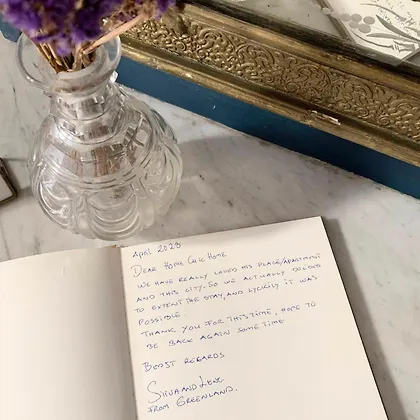 April 2023
DEAR HOME CHIC HOME
WE HAVE REALLY LOVED HIS PLACE/APARTMENT
AND THIS CITY. SO WE ACTUALLY DECIDED
TO EXTENT THE STAY, AND LYCKILY IT WAS
POSSIBLE.
THANK YOU FOR THIS TIME, HOPE TO
BE BACK AGAIN SOME TIME
BEDST REGARDS
AND
FROM GREENLAND.